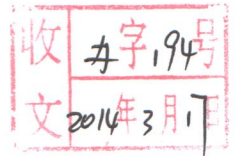 收 办字194号
文 2014年3月17日